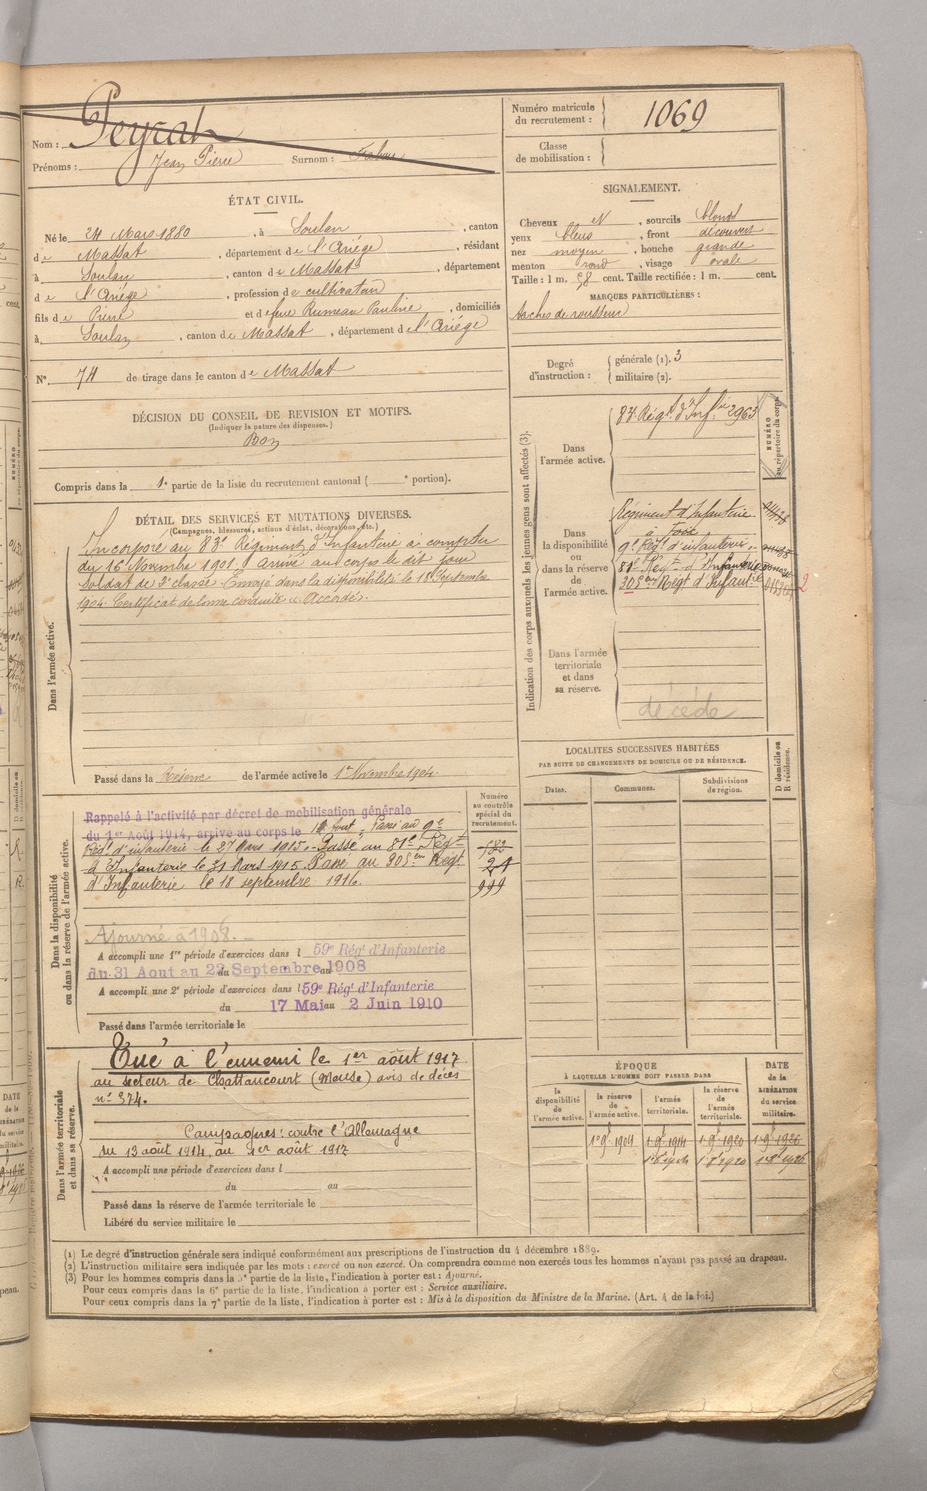 Nom : Peyrat
Prénoms : Jean Pierre Surnom :
Numéro matricule du recrutement : 1069
Classe de mobilisation :
ÉTAT CIVIL.
Né le 24 Mars 1880, à Soulan, canton
de Massat, département de l'Ariège, résidant
à Soulan, canton de Massat, département
de l'Ariège, profession de cultivateur
fils de Pierre et de feue Rumeau Pauline, domiciliés
à Soulan, canton de Massat, département de l'Ariège
N° 74 de tirage dans le canton de Massat
SIGNALEMENT.
Cheveux et, sourcils blond
yeux bleus, front découvert
nez moyen, bouche grande
menton rond, visage ovale
Taille : 1 m. 58 cent. Taille rectifiée : 1 m. cent.
MARQUES PARTICULIÈRES :
taches de rousseur
Degré d'instruction : générale (1). 3
militaire (2).
DÉCISION DU CONSEIL DE REVISION ET MOTIFS.
(Indiquer la nature des dispenses.)
Bon
Compris dans la 1e partie de la liste du recrutement cantonal ( e portion).
DÉTAIL DES SERVICES ET MUTATIONS DIVERSES.
(Campagnes, blessures, actions d'éclat, décorations, etc.)
Dans l'armée active.
Incorporé au 83e Régiment d'Infanterie à compter
du 16 Novembre 1901, arrivé au corps le dit jour
soldat de 2e classe. Envoyé dans la disponibilité le 18 Septembre
1904. Certificat de bonne conduite « Accordé ».
Passé dans la Réserve de l'armée active le 1er Novembre 1904.
Indication des corps auxquels les jeunes gens sont affectés (3).
NUMÉRO au répertoire du corps.
Dans l'armée active.
83e Régt d'Infie 2963
Dans la disponibilité ou dans la réserve de l'armée active.
Régiment d'Infanterie
à Foix
9e Régt d'infanterie
81e Régt d'Infanterie
305ème Régt d'Infanterie
2
Dans l'armée territoriale et dans sa réserve.
décédé
LOCALITES SUCCESSIVES HABITÉES
PAR SUITE DE CHANGEMENTS DE DOMICILE OU DE RÉSIDENCE.
Dates. Communes. Subdivisions de région.
D domicile ou R résidence.
Dans la disponibilité ou dans la réserve de l'armée active.
Numéro au contrôle spécial du recrutement.
Rappelé à l'activité par décret de mobilisation générale
du 1er Août 1914, arrivé au corps le Aout - Passé au 9e
Régt d'infanterie le 27 Mars 1915. - Passé au 81e Régt
d'Infanterie le 31 Mars 1915 Passé au 305ème Régt
d'Infanterie le 18 septembre 1916.
24
999
Ajourné à 1908. -
A accompli une 1re période d'exercices dans l 59e Régt d'Infanterie
du 31 Aout au 22 Septembre 1908
A accompli une 2e période d'exercices dans l 59e Régt d'Infanterie
du 17 Mai au 2 Juin 1910
Passé dans l'armée territoriale le
Dans l'armée territoriale et dans sa réserve.
Tué à l'ennemi le 1er août 1917
au secteur de Chattancourt (Meuse) avis de décès
n° 374.
Campagnes : contre l'Allemagne
du 13 août 1914, au 1er août 1917
A accompli une période d'exercices dans l
du au
Passé dans la réserve de l'armée territoriale le
Libéré du service militaire le
ÉPOQUE
À LAQUELLE L'HOMME DOIT PASSER DANS
la disponibilité de l'armée active.
la réserve de l'armée active.
l'armée territoriale.
la réserve de l'armée territoriale.
DATE de la LIBÉRATION du service militaire.
1er 9bre 1904 1er 9bre 1914 1er 9bre 1920 1er 9bre 1926
(1) Le degré d'instruction générale sera indiqué conformément aux prescriptions de l'instruction du 4 décembre 1889.
(2) L'instruction militaire sera indiquée par les mots : exercé ou non exercé. On comprendra comme non exercés tous les hommes n'ayant pas passé au drapeau.
(3) Pour les hommes compris dans la 5e partie de la liste, l'indication à porter est : Ajourné.
Pour ceux compris dans la 6e partie de la liste, l'indication à porter est : Service auxiliaire.
Pour ceux compris dans la 7e partie de la liste, l'indication à porter est : Mis à la disposition du Ministre de la Marine. (Art. 4 de la loi.)